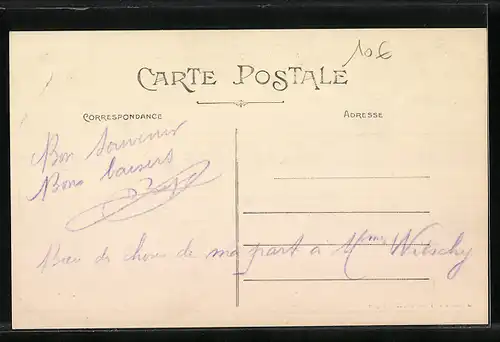 10€
CARTE POSTALE
CORRESPONDANCE
ADRESSE
Bon souvenir
Bons baisers
Bien de choses de ma part à Mme Wieschy